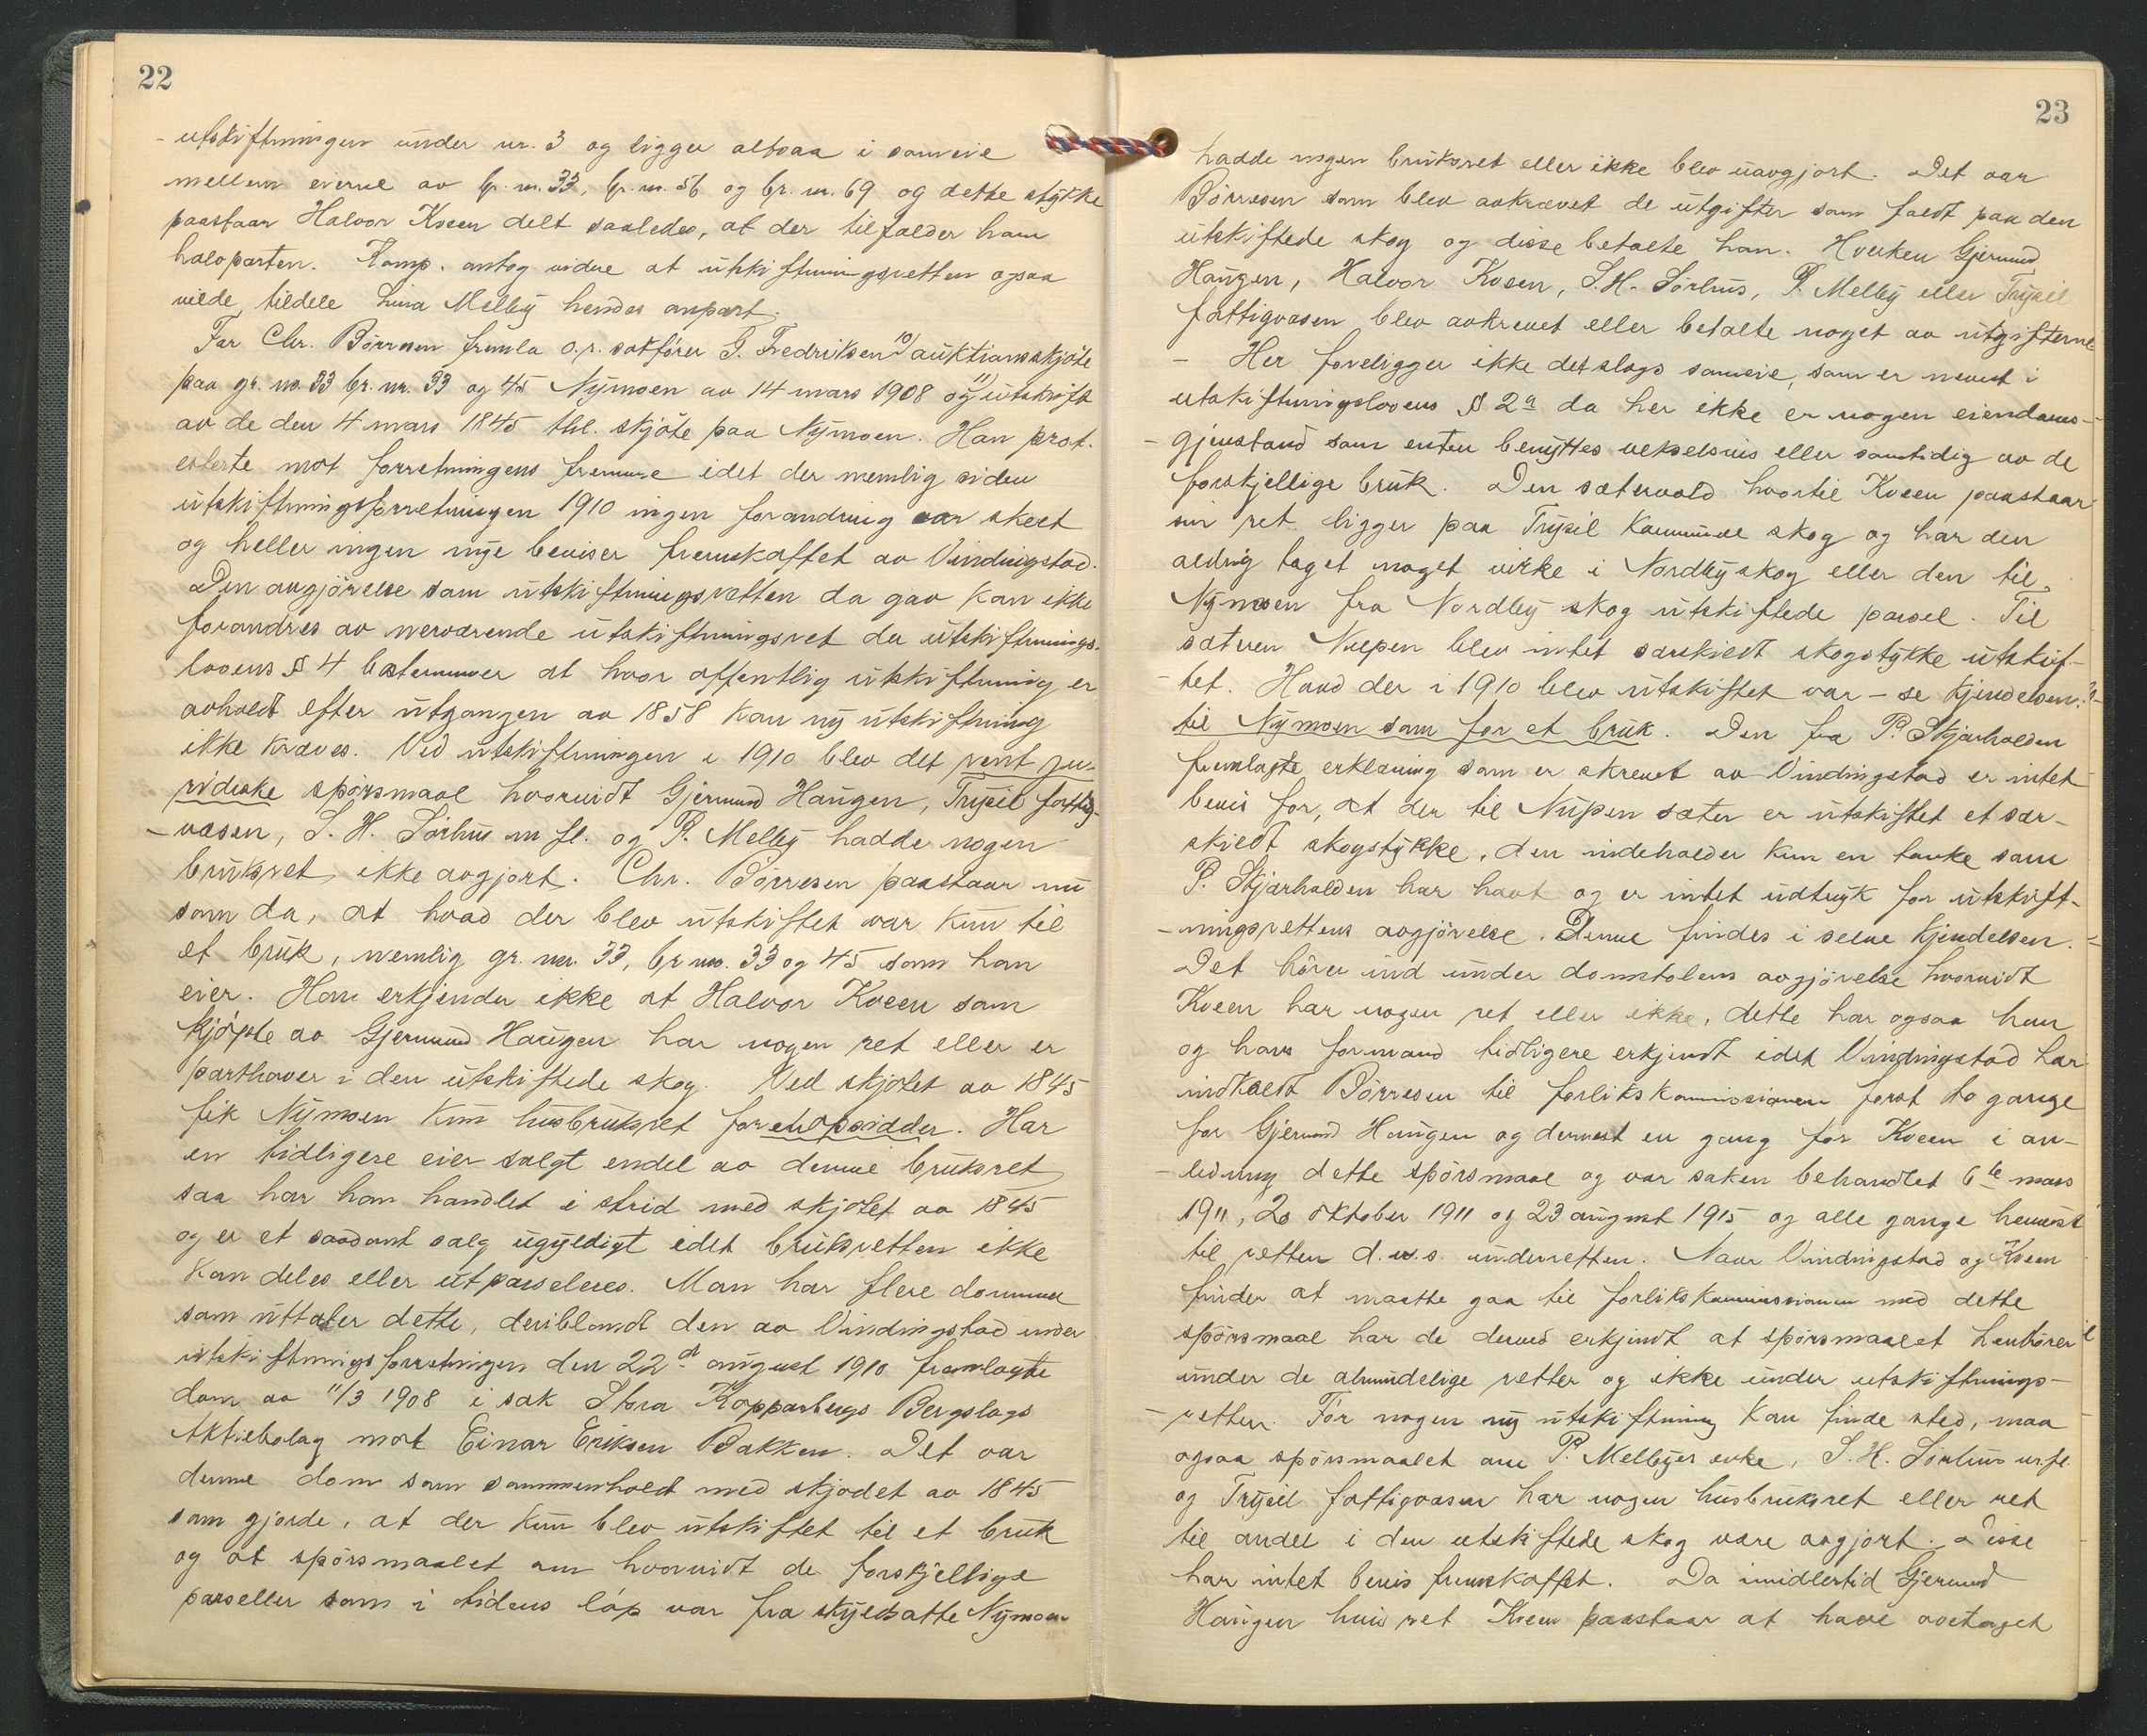 22
utskiftningen under nr. 3 og ligger altsaa i sameie
mellem eierne av br. nr. 33, br. nr. 56 og br. nr. 69 og dette stykke
paastaar Halvor Kveen delt saaledes, at der tilfalder ham
halvparten. Komp. antog vidre at utskiftningsretten ogsaa
vilde tildele Lina Melby hendes anpart.
For Chr. Börresen fremla o.r. sakförer G. Fredriksen 10) auktionsskjöte
paa gr. no. 33 br. nr. 33 og 45 Nymoen av 14 mars 1908 og 11) utskrift
av de den 4 mars 1845 thl. skjöte paa Nymoen. Han prot-
esterte mot forretningens fremme idet der nemlig siden
utskiftningsforretningen 1910 ingen forandring var skeet
og heller ingen nye beviser fremskaffet av Vindingstad.
Den avgjörelse som utskiftningsretten da gav kan ikke
forandres av nerværende utskiftningsret da utskiftnings-
lovens § 4 bestemmer at hvor offentlig utskiftning er
avholdt efter utgangen av 1858 kan ny utskiftning
ikke kræves. Ved utskiftningen i 1910 blev det rent ju-
ridiske spörsmaal hvorvidt Gjermund Haugen, Trysil fattig-
væsen, S. H. Sörhus m fl. og P. Melby hadde nogen
bruksret ikke avgjort. Chr. Börresen paastaar nu
som da, at hvad der blev utskiftet var kun til
et bruk, nemlig gr. nr. 33, br no. 33 og 45 som han
eier. Han erkjender ikke at Halvor Kveen som
kjöpte av Gjermund Haugen har nogen ret eller er
parthaver i den utskiftede skog. Ved skjötet av 1845
fik Nymoen kun husbruksret for en opsidder. Har
en tidligere eier solgt endel av denne bruksret
saa har han handlet i strid med skjötet av 1845
og er et saadant salg ugyldigt idet bruksretten ikke
kan deles eller utparseleres. Man har flere domme
som uttaler dette, deriblandt den av Vindingstad under
utskiftningsforretningen den 22de august 1910 fremlagte
dom av 11/3 1908 i sak Stora Kopparbergs Bergslags
Aktiebolag mot Einar Eriksen Bakken. Det var
denne dom som sammenholdt med skjödet av 1845
som gjorde, at der kun blev utskiftet til et bruk
og at spörsmaalet om hvorvidt de forskjellige
parseller som i tidens löp var fra skyldsatte Nymoen
23
hadde nogen bruksret eller ikke blev uavgjort. Det var
Börresen som blev avkrævet de utgifter som faldt paa den
utskiftede skog og disse betalte han. Hverken Gjermund
Haugen, Halvor Kveen, S. H. Sörhus, P. Melby eller Trysil
fattigvæsen blev avkrevet eller betalte noget av utgifterne
- Her foreligger ikke det slags sameie, som er nevnt i
utskiftningslovens § 2a da her ikke er nogen eiendoms-
gjenstand som enten benyttes vekselvis eller samtidig av de
forskjellige bruk. Den sætervold hvortil Kveen paastaar
sin ret ligger paa Trysil kommune skog og har den
aldrig taget noget virke i Nordbyskog eller den til
Nymoen fra Nordby skog utskiftede parsel. Til
sæteren Nupen blev intet særskildt skogstykke utskif-
tet. Hvad der i 1910 blev utskiftet var - se kjendelsen
til Nymoen som for et bruk. Den fra P. Skjærholden
fremlagte erklæring som er skrevet av Vindingstad er intet
bevis for, at der til Nupen sæter er utskiftet et sær-
skildt skogstykke, den indeholder kun en tanke som
P. Skjærholden har havt og er intet udtryk for utskift-
ningsrettens avgjörelse. Denne findes i selve kjendelsen.
Det hörer ind under domstolens avgjörelse hvorvidt
Kveen har nogen ret eller ikke, dette har ogsaa han
og hans formand tidligere erkjendt idet Vindingstad har
indkaldt Börresen til forlikskommissionen först to gange
for Gjermund Haugen og dernest en gang for Kveen i an-
ledning dette spörsmaal og var saken behandlet 6te mars
1911, 20 oktober 1911 og 23 august 1915 og alle gange henvist
til retten d.v.s. underretten. Naar Vindingstad og Kveen
finder at maatte gaa til forlikskommissionen med dette
spörsmaal har de derved erkjendt at spörsmaalet henhörer
under de almindelige retter og ikke under utskiftnings-
retten. För nogen ny utskiftning kan finde sted, maa
ogsaa spörsmaalet om P. Melbyes enke, S. H. Sörhus m fl.
og Trysil fattigvæsen har nogen husbruksret eller ret
til andel i den utskiftede skog være avgjort. Disse
har intet bevis fremskaffet. Da imidlertid Gjermund
Haugen hvis ret Kveen paastaar at have overtaget